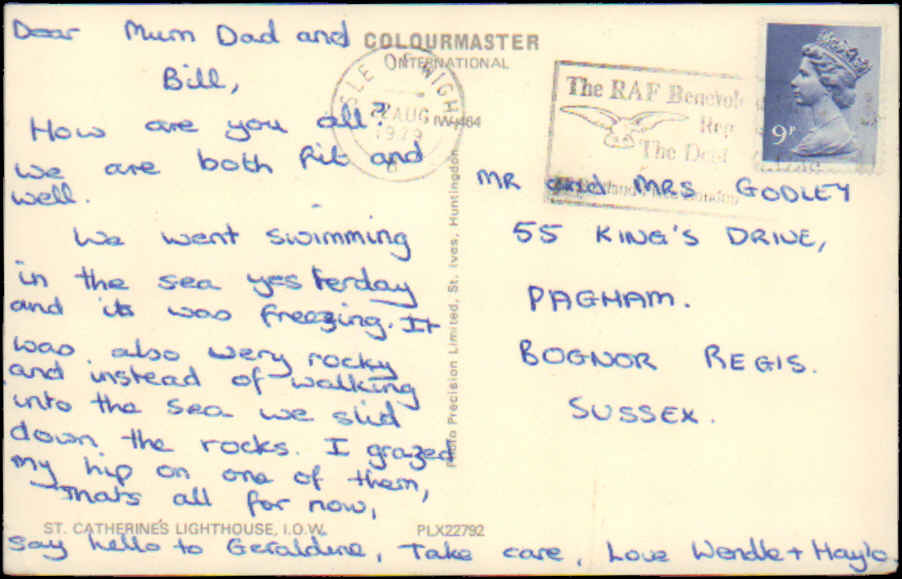 Dear Mum Dad and
Bill,
How are you all?
we are both fit and
well.
We went swimming
in the sea yesterday
and it was freezing. It
was also very rocky
and instead of walking
into the sea we slid
down the rocks. I grazed
my hip on one of them,
Thats all for now,
say hello to Geraldine, Take care, Love Wendle + Hayle
COLOURMASTER
INTERNATIONAL
ISLE OF WIGHT
AUG
1979
IW/464
The RAF Benevole
Rep
The Debt
9P
MR and MRS GODLEY
55 KING'S DRIVE,
PAGHAM.
BOGNOR REGIS.
SUSSEX.
Photo Precision Limited, St. Ives, Huntingdon
ST. CATHERINE'S LIGHTHOUSE, I.O.W.
PLX22792